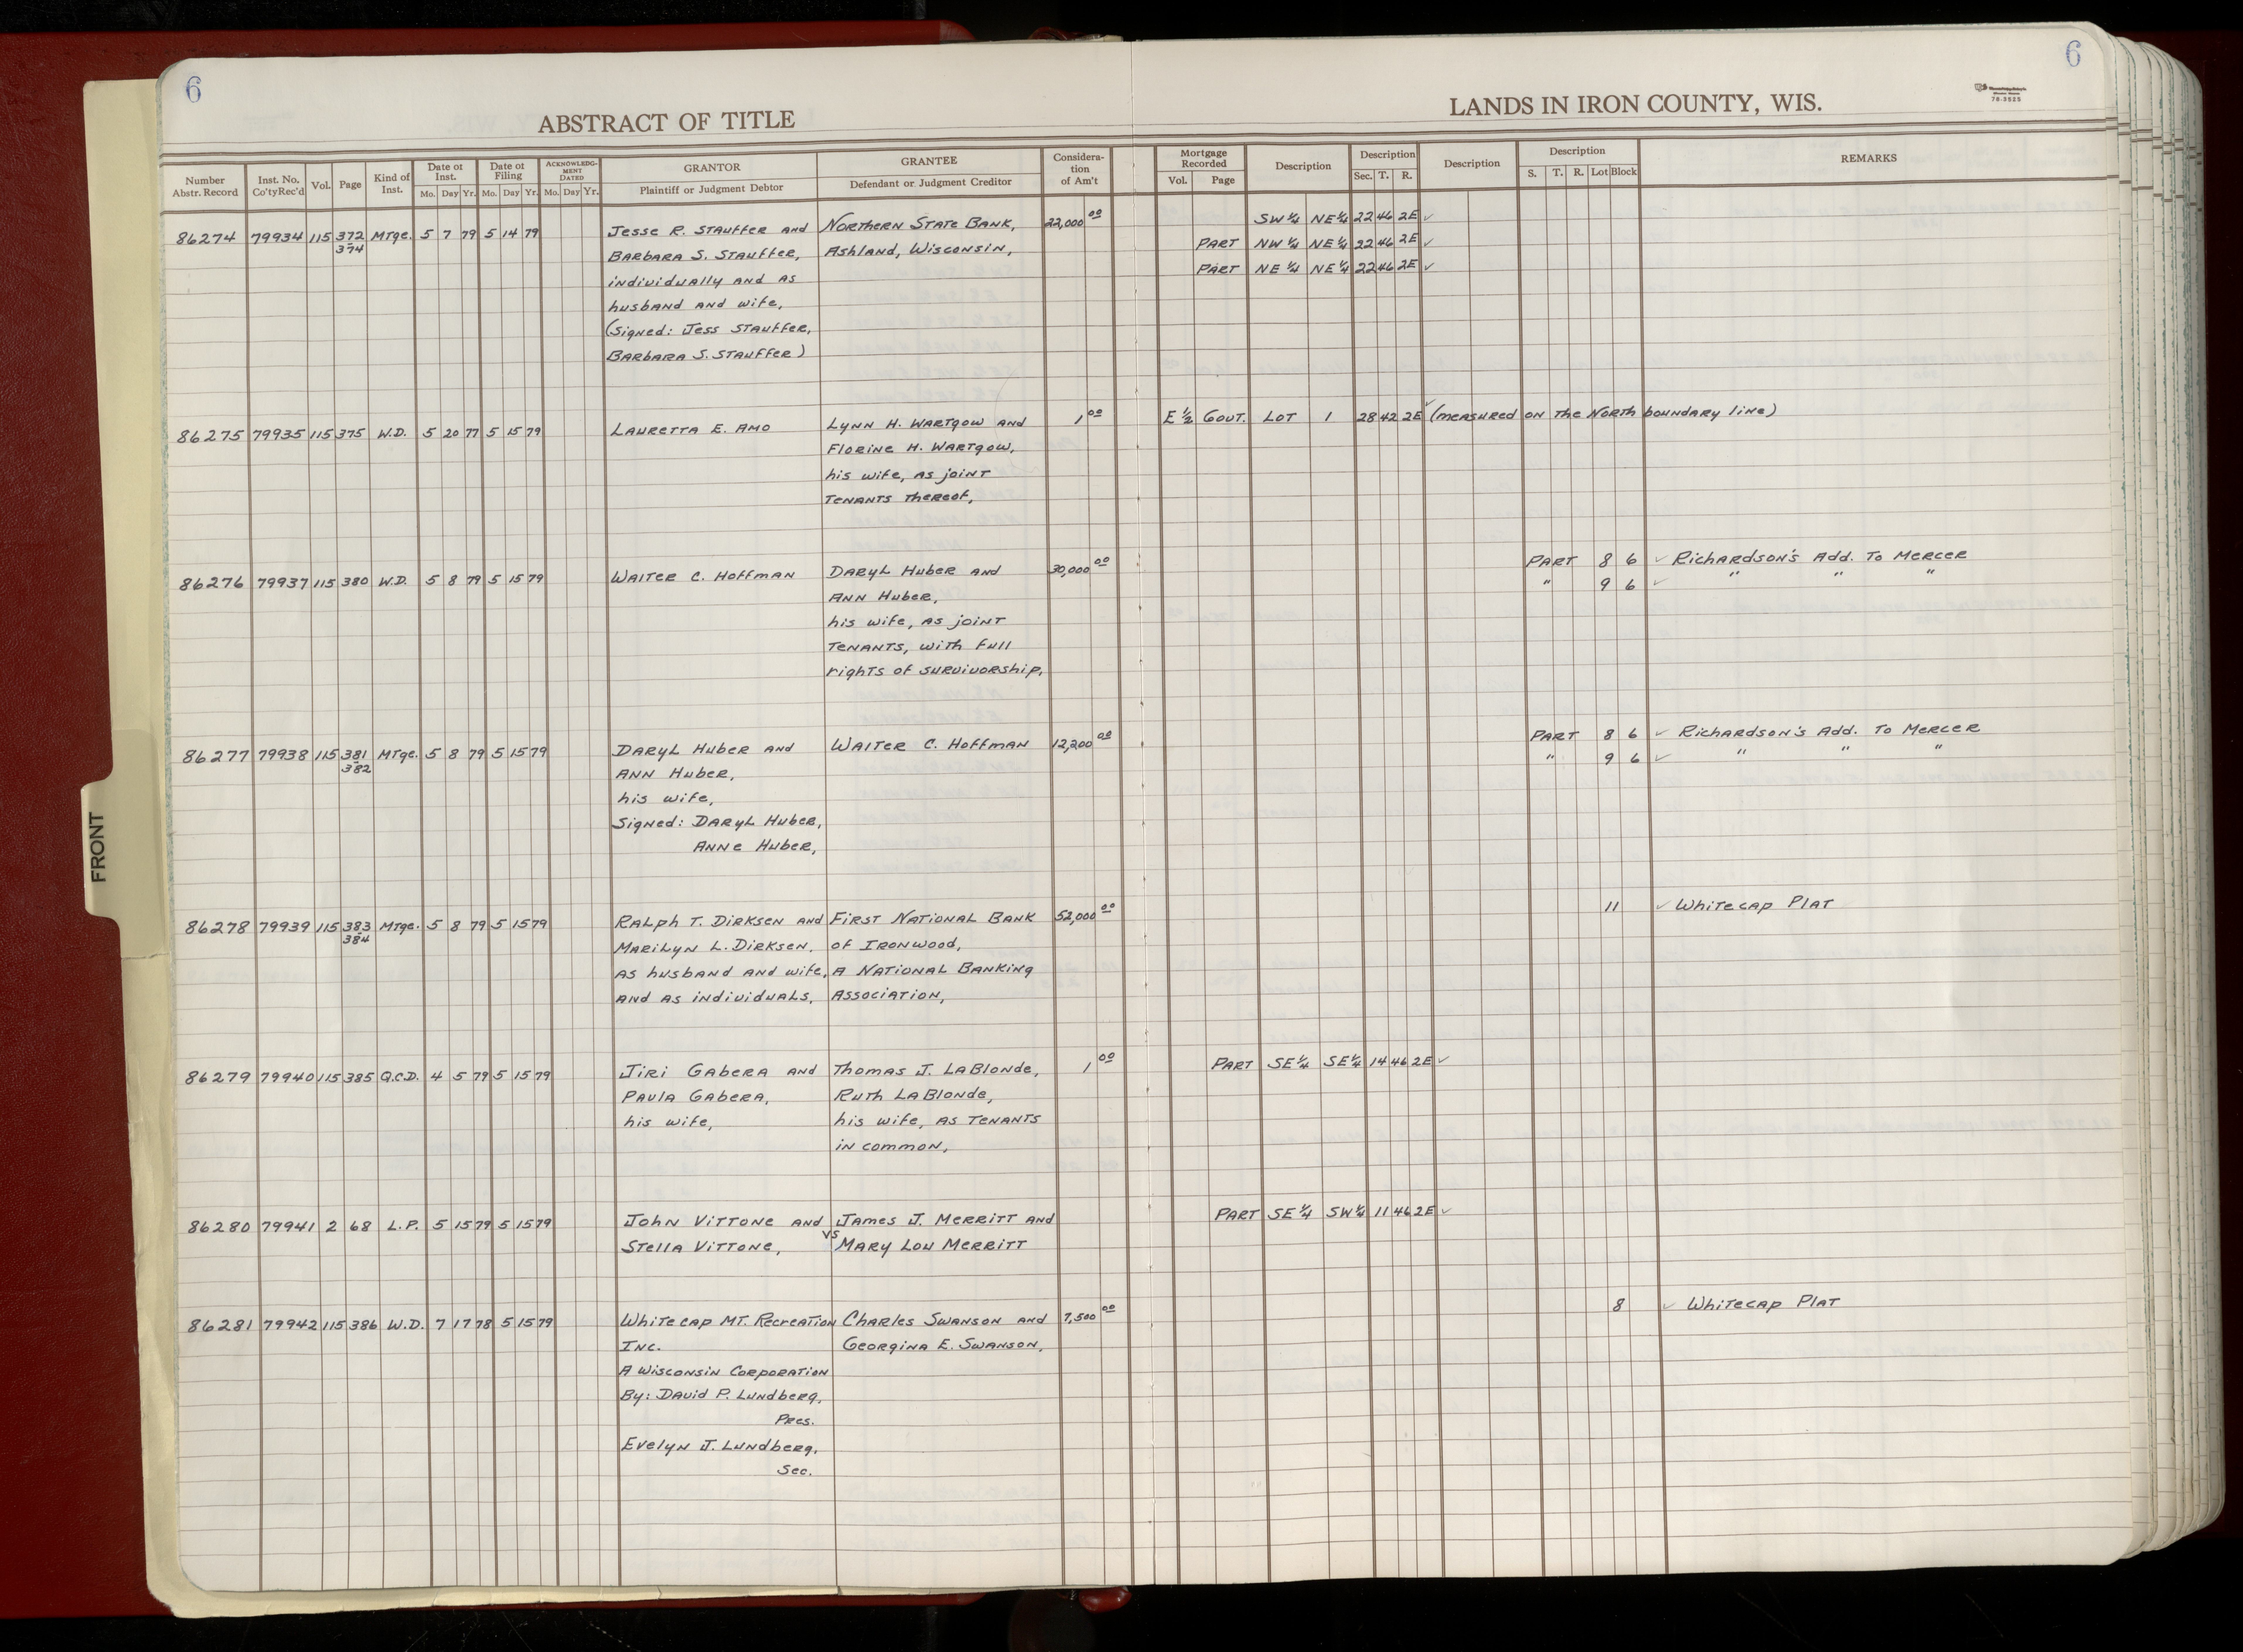 6
6
ABSTRACT OF TITLE
LANDS IN IRON COUNTY, WIS.
78-3525
Number Abstr. Record | Inst. No. Co'tyRec'd | Vol. | Page | Kind of Inst. | Date of Inst. Mo. Day Yr. | Date of Filing Mo. Day Yr. | ACKNOWLEDGMENT DATED Mo. Day Yr. | GRANTOR Plaintiff or Judgment Debtor | GRANTEE Defendant or Judgment Creditor | Consideration of Am't | Mortgage Recorded Vol. Page | Description | Description Sec. T. R. | Description | Description S. T. R. Lot Block | REMARKS
SW 1/4 NE 1/4 22 46 2E ✓
86274 79934 115 372-374 MTge. 5 7 79 5 14 79 Jesse R. Stauffer and Northern State Bank, 22,000 00
Barbara S. Stauffer, Ashland, Wisconsin, Part NW 1/4 NE 1/4 22 46 2E ✓
individually and as Part NE 1/4 NE 1/4 22 46 2E ✓
husband and wife,
(Signed: Jess Stauffer,
Barbara S. Stauffer)
86275 79935 115 375 W.D. 5 20 77 5 15 79 Lauretta E. Amo Lynn H. Wartgow and 1 00 E 1/2 Govt. Lot 1 28 42 2E ✓ (measured on the North boundary line)
Florine H. Wartgow,
his wife, as joint
tenants thereof,
86276 79937 115 380 W.D. 5 8 79 5 15 79 Walter C. Hoffman Daryl Huber and 30,000 00 Part 8 6 ✓ Richardson's Add. To Mercer
Ann Huber, " 9 6 ✓ " " "
his wife, as joint
tenants, with full
rights of survivorship,
86277 79938 115 381-382 MTge. 5 8 79 5 15 79 Daryl Huber and Walter C. Hoffman 12,200 00 Part 8 6 ✓ Richardson's Add. To Mercer
Ann Huber, " 9 6 ✓ " " "
his wife,
Signed: Daryl Huber,
Anne Huber,
86278 79939 115 383-384 MTge. 5 8 79 5 15 79 Ralph T. Dirksen and First National Bank 52,000 00 11 ✓ Whitecap Plat
Marilyn L. Dirksen, of Ironwood,
as husband and wife, A National Banking
and as individuals, Association,
86279 79940 115 385 Q.C.D. 4 5 79 5 15 79 Jiri Gabera and Thomas J. LaBlonde, 1 00 Part SE 1/4 SE 1/4 14 46 2E ✓
Paula Gabera, Ruth LaBlonde,
his wife, his wife, as tenants
in common,
86280 79941 2 68 L.P. 5 15 79 5 15 79 John Vittone and James J. Merritt and Part SE 1/4 SW 1/4 11 46 2E ✓
Stella Vittone, vs Mary Lou Merritt
86281 79942 115 386 W.D. 7 17 78 5 15 79 Whitecap Mt. Recreation Charles Swanson and 7,500 00 8 ✓ Whitecap Plat
Inc. Georgina E. Swanson,
A Wisconsin Corporation
By: David P. Lundberg,
Pres.
Evelyn J. Lundberg,
Sec.
FRONT